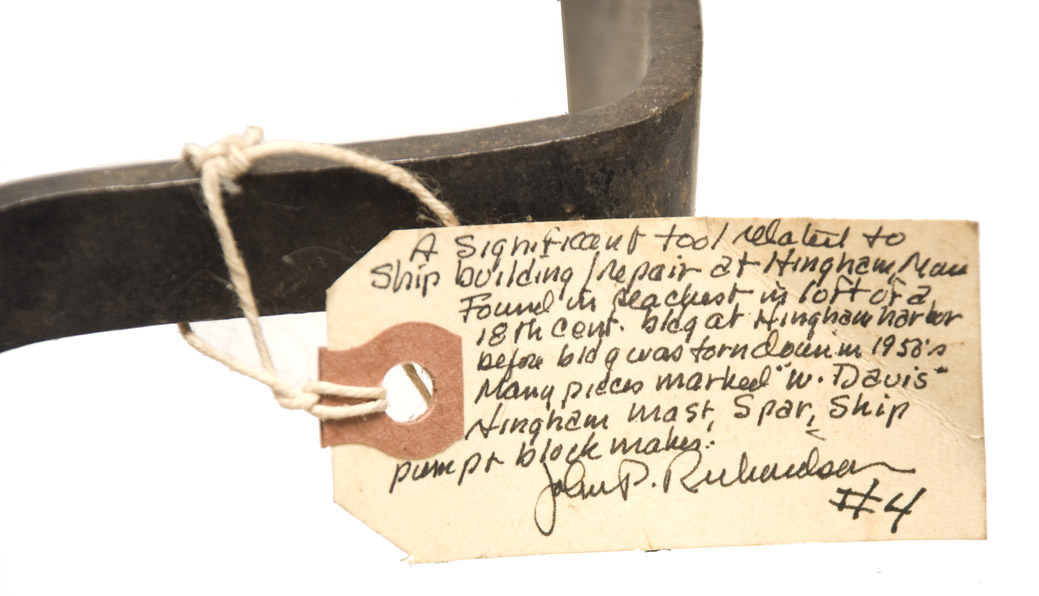 A Significant tool related to
Ship building/repair at Hingham, Mass
Found in seachest in loft of a
18th cent. bldg at Hingham harbor
before bldg was torn down in 1950's
Many pieces marked "W. Davis"
Hingham mast, Spar, Ship
pump & block maker.
John P. Richardson
#4